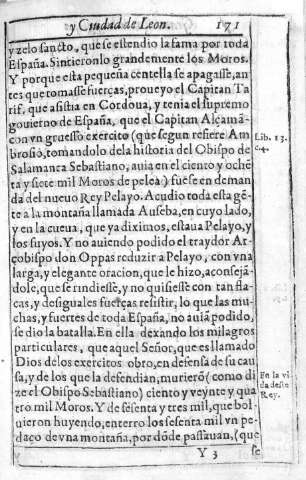 y Ciudad de Leon. 171
y zelo sancto, que se estendio la fama por toda
España. Sintieronlo grandemente los Moros.
Y porque esta pequeña centella se apagasse, an-
tes que tomasse fuerças, proueyo el Capitan Ta
rif, que asistia en Cordoua, y tenia el supremo
gouierno de España, que el Capitan Alçamà
con vn gruesso exercito (que segun refiere Am
brosio, tomandolo de la historia del Obispo de
Salamanca Sebastiano, auia en el ciento y oché
ta y siete mil Moros de pelea) fuesse en deman
da del nueuo Rey Pelayo. Acudio toda esta gé-
te a la montaña llamada Auseba, en cuyo lado,
y en la cueua, que ya diximos, estaua Pelayo, y
los suyos. Y no auiendo podido el traydor Ar-
çobispo don Oppas reduzir a Pelayo, con vna
larga, y elegante oracion, que le hizo, aconsejã-
dole, que se rindiesse, y no quisiesse con tan fla-
cas, y desiguales fuerças resistir, lo que las mu-
chas, y fuertes de toda España, no auiã podido,
se dio la batalla. En ella dexando los milagros
particulares, que aquel Señor, que es llamado
Dios de los exercitos obro, en defensa de su cau
sa, y de los que la defendian, murierõ (como di
ze el Obispo Sebastiano) ciento y veynte y qua
tro mil Moros. Y de sesenta y tres mil, que bol-
uieron huyendo, enterro los sesenta mil vn pe-
daço de vna montaña, por dõde passauan, (que
Y 3 se
Lib. 13.
c. 4.
En la vi
da deste
Rey.